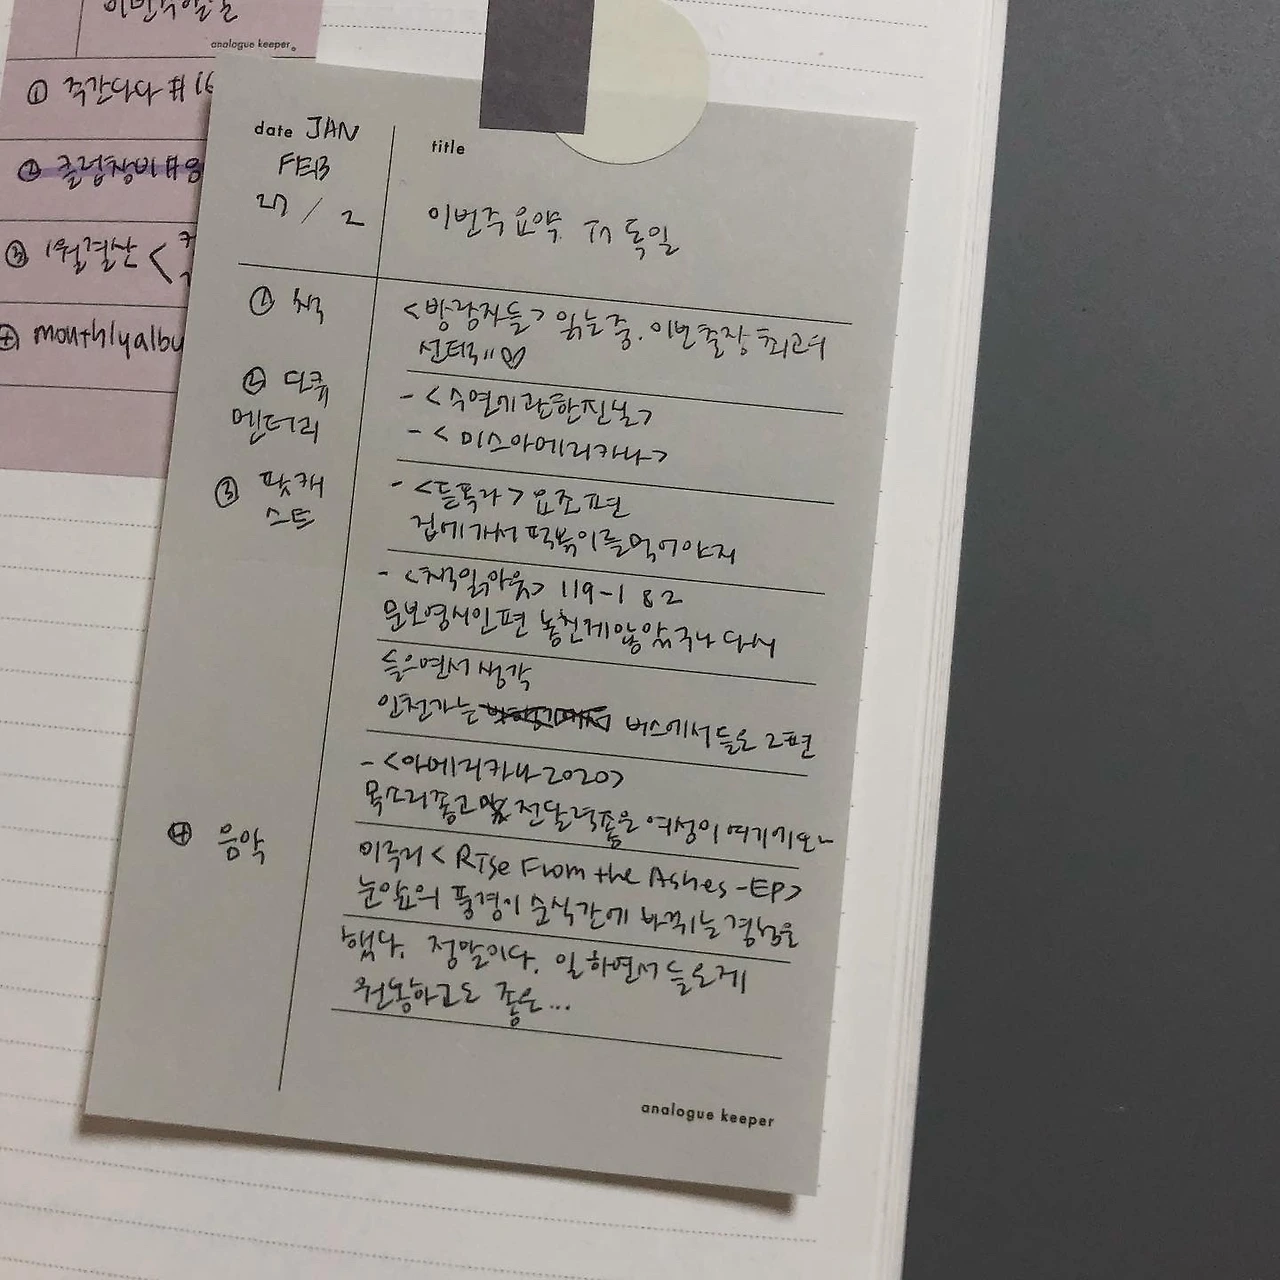 이번주할일
analogue keeper.
① 주간다다 #16
② 클럽창비 #8
③ 1월결산 <
④ monthly albu
date JAN
FEB
27 / 2
title
이번주 요약 in 독일
① 책
<방랑자들> 읽는 중. 이번 출장 최고의
선택!! ♡
② 다큐
멘터리
- <수면에 관한 진실>
- <미스 아메리카나>
③ 팟캐
스트
- <듣똑라> 요조 편
집에 가서 떡볶이를 먹어야지
- <책읽아웃> 119-1 & 2
문보영 시인 편 놓친 게 많았구나 다시
들으면서 생각
인천가는 버스에서 들은 2편
- <아메리카나 2020>
목소리 좋고 전달력 좋은 여성이 여기 계오~
④ 음악
이주리 <Rise From the Ashes - EP>
눈앞의 풍경이 순식간에 바뀌는 경험을
했다. 정말이다. 일하면서 들은 게
원통하고도 좋은...
analogue keeper